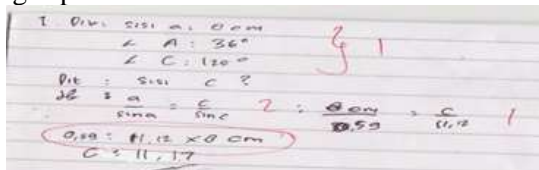 1. Dik: sisi a: 8 cm
∠ A: 36°
∠ C: 120° } 1
Dit: sisi c?
Jb: a/sin a = c/sin c 2 : 8 cm/0,59 = c/11,12 1
0,59 = 11,12 x 8 cm
C = 11,17